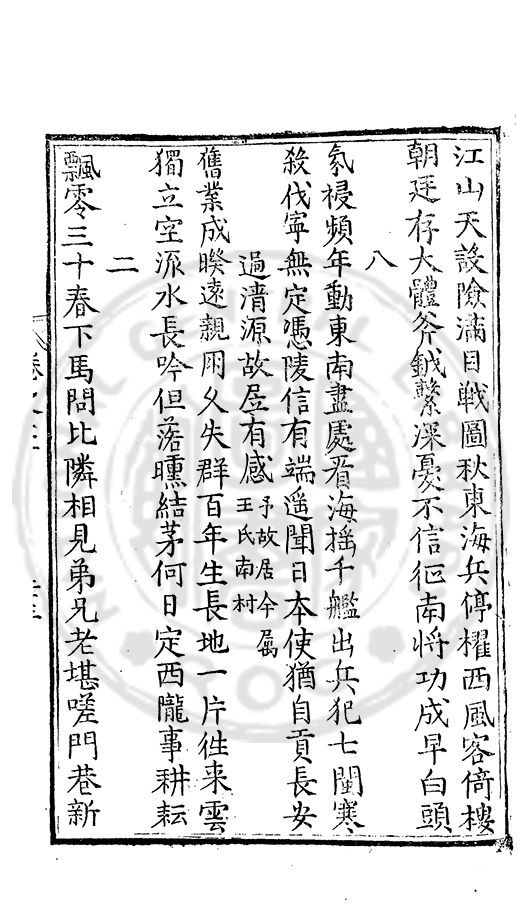 江山天設險滿目戰圖秋東海兵停櫂西風客倚樓
朝廷存大體斧鉞繫深憂不信征南將功成早白頭
八
氛祲頻年動東南盡處看海搖千艦出兵犯七閩寒
殺伐寧無定憑陵信有端遥聞日本使猶自貢長安
過清源故居有感予故居今屬
王氏南村
舊業成暌遠親朋久失群百年生長地一片徃来雲
獨立空流水長吟但落曛結茅何日定西隴事耕耘
二
飄零三十春下馬問比隣相見弟兄老堪嗟門巷新
卷之三